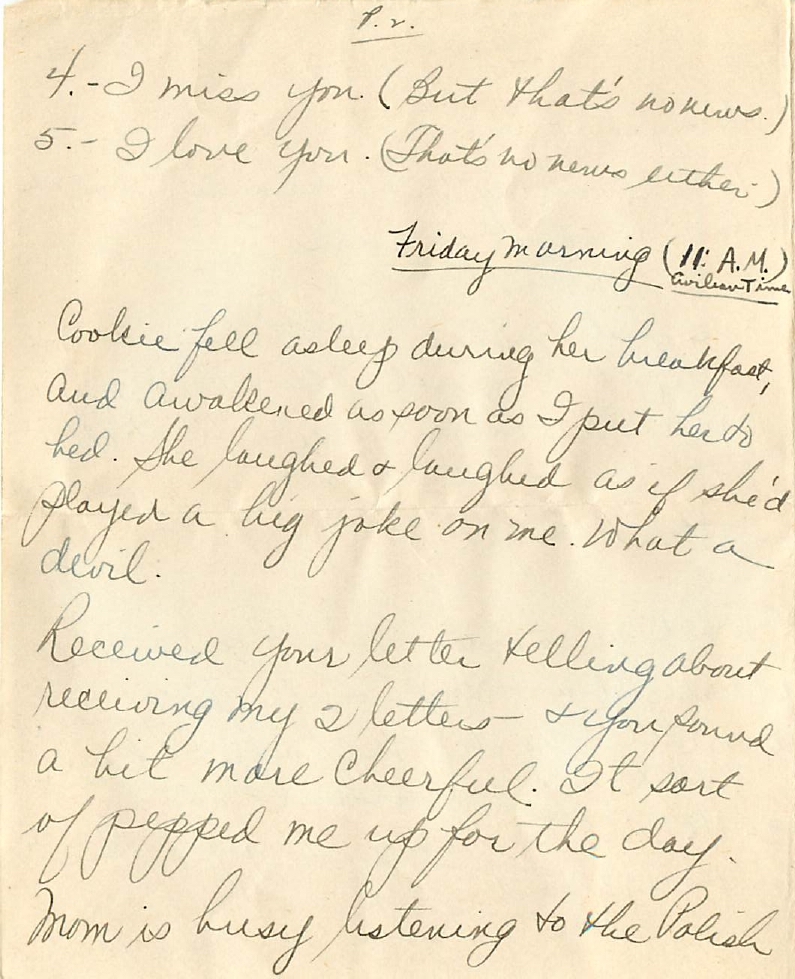 P. 2.
4.- I miss you. (But that's no news.)
5.- I love you. (That's no news either.)
Friday Morning (11: A.M.)
Civilian Time
Cookie fell asleep during her breakfast,
and awakened as soon as I put her to
bed. She laughed & laughed as if she'd
played a big joke on me. What a
devil.
Received your letter telling about
receiving my 2 letters - & you sound
a bit more cheerful. It sort
of pepped me up for the day.
Mom is busy listening to the Polish